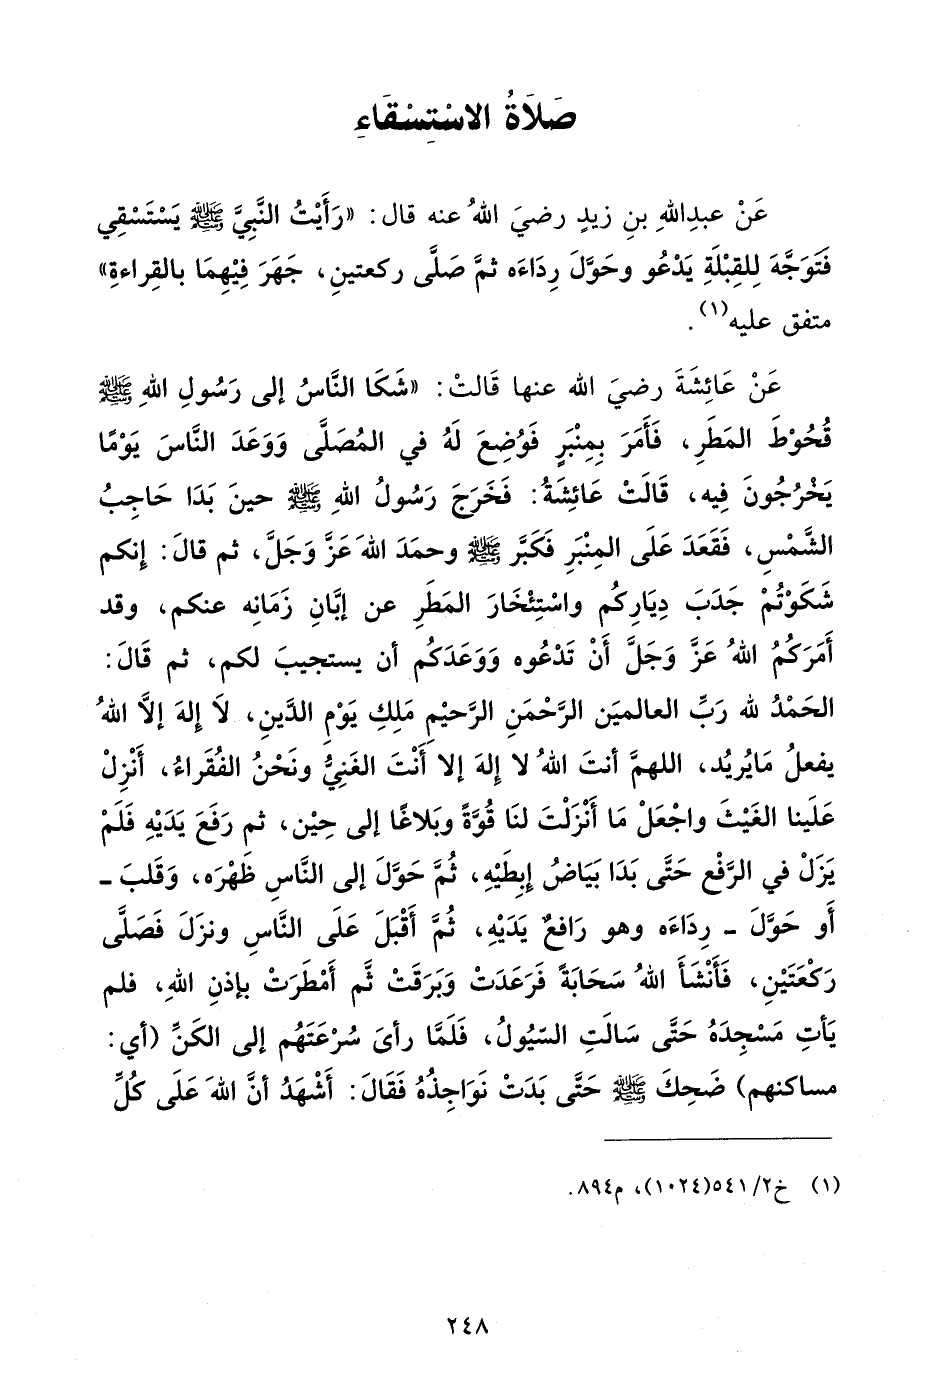 صَلَاةُ الاسْتِسْقَاءِ
عَنْ عبدِاللهِ بنِ زيدٍ رضيَ اللهُ عنه قال: «رَأَيْتُ النَّبِيَّ ﷺ يَسْتَسْقِي
فَتَوَجَّهَ لِلقِبْلَةِ يَدْعُو وحَوَّلَ رِدَاءَه ثمَّ صَلَّى ركعتينِ، جَهَرَ فِيْهِمَا بالقِراءةِ»
متفق عليه(١).
عَنْ عَائِشَةَ رضيَ الله عنها قَالتْ: «شَكَا النَّاسُ إلى رَسُولِ اللهِ ﷺ
قُحُوْطَ المَطَرِ، فَأَمَرَ بِمِنْبَرٍ فَوُضِعَ لَهُ في المُصَلَّى وَوَعَدَ النَّاسَ يَوْمًا
يَخْرُجُونَ فِيه، قَالَتْ عَائِشَةُ: فَخَرَجَ رَسُولُ اللهِ ﷺ حينَ بَدَا حَاجِبُ
الشَّمْسِ، فَقَعَدَ عَلَى المِنْبَرِ فَكَبَّر ﷺ وحمَدَ اللهَ عَزَّ وَجَلَّ، ثم قالَ: إنكم
شَكَوْتُمْ جَدَبَ دِيَارِكُم واسْتِئْخَارَ المَطَرِ عن إبَّانِ زَمَانِه عنكم، وقد
أَمَرَكُمُ اللهُ عَزَّ وَجَلَّ أَنْ تَدْعُوه وَوَعَدَكُم أن يستجيبَ لكم، ثم قَالَ:
الحَمْدُ لله رَبِّ العالميَن الرَّحْمَنِ الرَّحيْمِ مَلِكِ يَوْمِ الدَّينِ، لَا إلهَ إلاَّ اللهُ
يفعلُ مَايُريُد، اللهمَّ أنتَ اللهُ لا إلهَ إلا أَنْتَ الغَنِيُّ ونَحْنُ الفُقَراءُ، أَنْزِلْ
عَلَينا الغَيْثَ واجْعَلْ مَا أَنْزَلْتَ لنَا قُوَّةً وبَلاغًا إلى حِيْن، ثم رَفَعَ يَدَيْهِ فَلَمْ
يَزَلْ في الرَّفْعِ حَتَّى بَدَا بَيَاضُ إِبِطَيْهِ، ثُمَّ حَوَّلَ إلى النَّاسِ ظَهْرَه، وَقَلبَ ـ
أو حَوَّلَ ـ رِدَاءَه وهو رَافِعٌ يَدَيْهِ، ثُمَّ أَقْبَلَ عَلَى النَّاسِ ونزَلَ فَصَلَّى
رَكْعَتَيْنِ، فَأَنْشَأَ اللهُ سَحَابَةً فَرَعَدَتْ وَبَرَقَتْ ثَّم أَمْطَرَتْ بإذنِ اللهِ، فلم
يَأتِ مَسْجِدَهُ حَتَّى سَالَتِ السّيُولُ، فَلَمَّا رأىَ سُرْعَتَهُم إلى الكَنِّ (أي:
مساكنهم) ضَحِكَ ﷺ حَتَّى بَدَتْ نَوَاجِذُهُ فَقَالَ: أَشْهَدُ أنَّ اللهَ عَلَى كُلِّ
(١) خ٢/ ٥٤١(١٠٢٤)، م٨٩٤.
٢٤٨